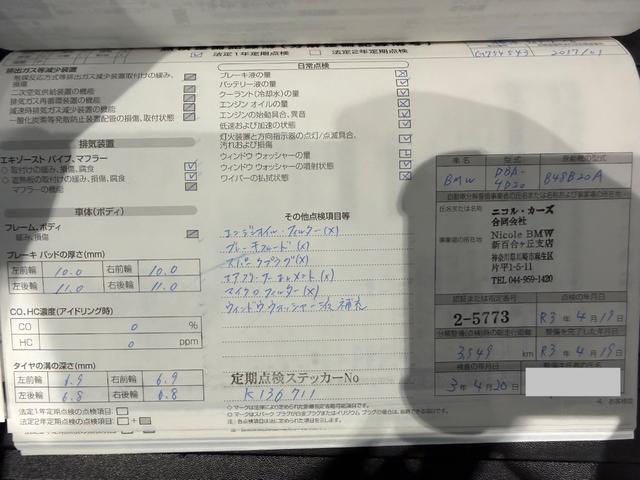 法定1年定期点検
法定2年定期点検
G754543
2017/01
排出ガス等減少装置
触媒反応方式等排出ガス減少装置取付けの緩み、損傷
二次空気供給装置の機能
排気ガス再循環装置の機能
減速時排気ガス減少装置の機能
一酸化炭素等発散防止装置配管の損傷、取付状態
排気装置
エキゾースト パイプ、マフラー
取付けの緩み、損傷、腐食
遮熱板の取付けの緩み、損傷、腐食
マフラーの機能
車体(ボディ)
フレーム、ボディ
緩み、損傷
ブレーキ パッドの厚さ(mm)
左前輪 10.0 右前輪 10.0
左後輪 11.0 右後輪 11.0
CO、HC濃度(アイドリング時)
CO 0 %
HC 0 ppm
タイヤの溝の深さ(mm)
左前輪 6.9 右前輪 6.9
左後輪 6.8 右後輪 6.8
法定1年定期点検の点検項目:
法定2年定期点検の点検項目: +
日常点検
ブレーキ液の量
バッテリー液の量
クーラント(冷却水)の量
エンジン オイルの量
エンジンの始動具合、異音
低速および加速の状態
灯火装置と方向指示器の点灯/点滅具合、
汚れおよび損傷
ウィンドウ ウォッシャーの量
ウィンドウ ウォッシャーの噴射状態
ワイパーの払拭状態
その他点検項目等
エンジンオイル・フィルター(x)
ブレーキフルード(x)
スパークプラグ(x)
エアクリーナーエレメント(x)
マイクロフィルター(x)
ウィンドウウォッシャー液 補充
定期点検ステッカーNo
K136711
車名 型式 原動機の型式
BMW DBA-4D20 B48B20A
氏名または名称
ニコル・カーズ
合同会社
Nicole BMW
新百合ヶ丘支店
事業場の所在地
神奈川県川崎市麻生区
片平1-5-11
TEL 044-959-1420
認証または指定番号 点検の年月日
2-5773 R3年4月19日
整備を完了した年月日
3549 km R3年4月19日
検査の年月日
3年4月20日